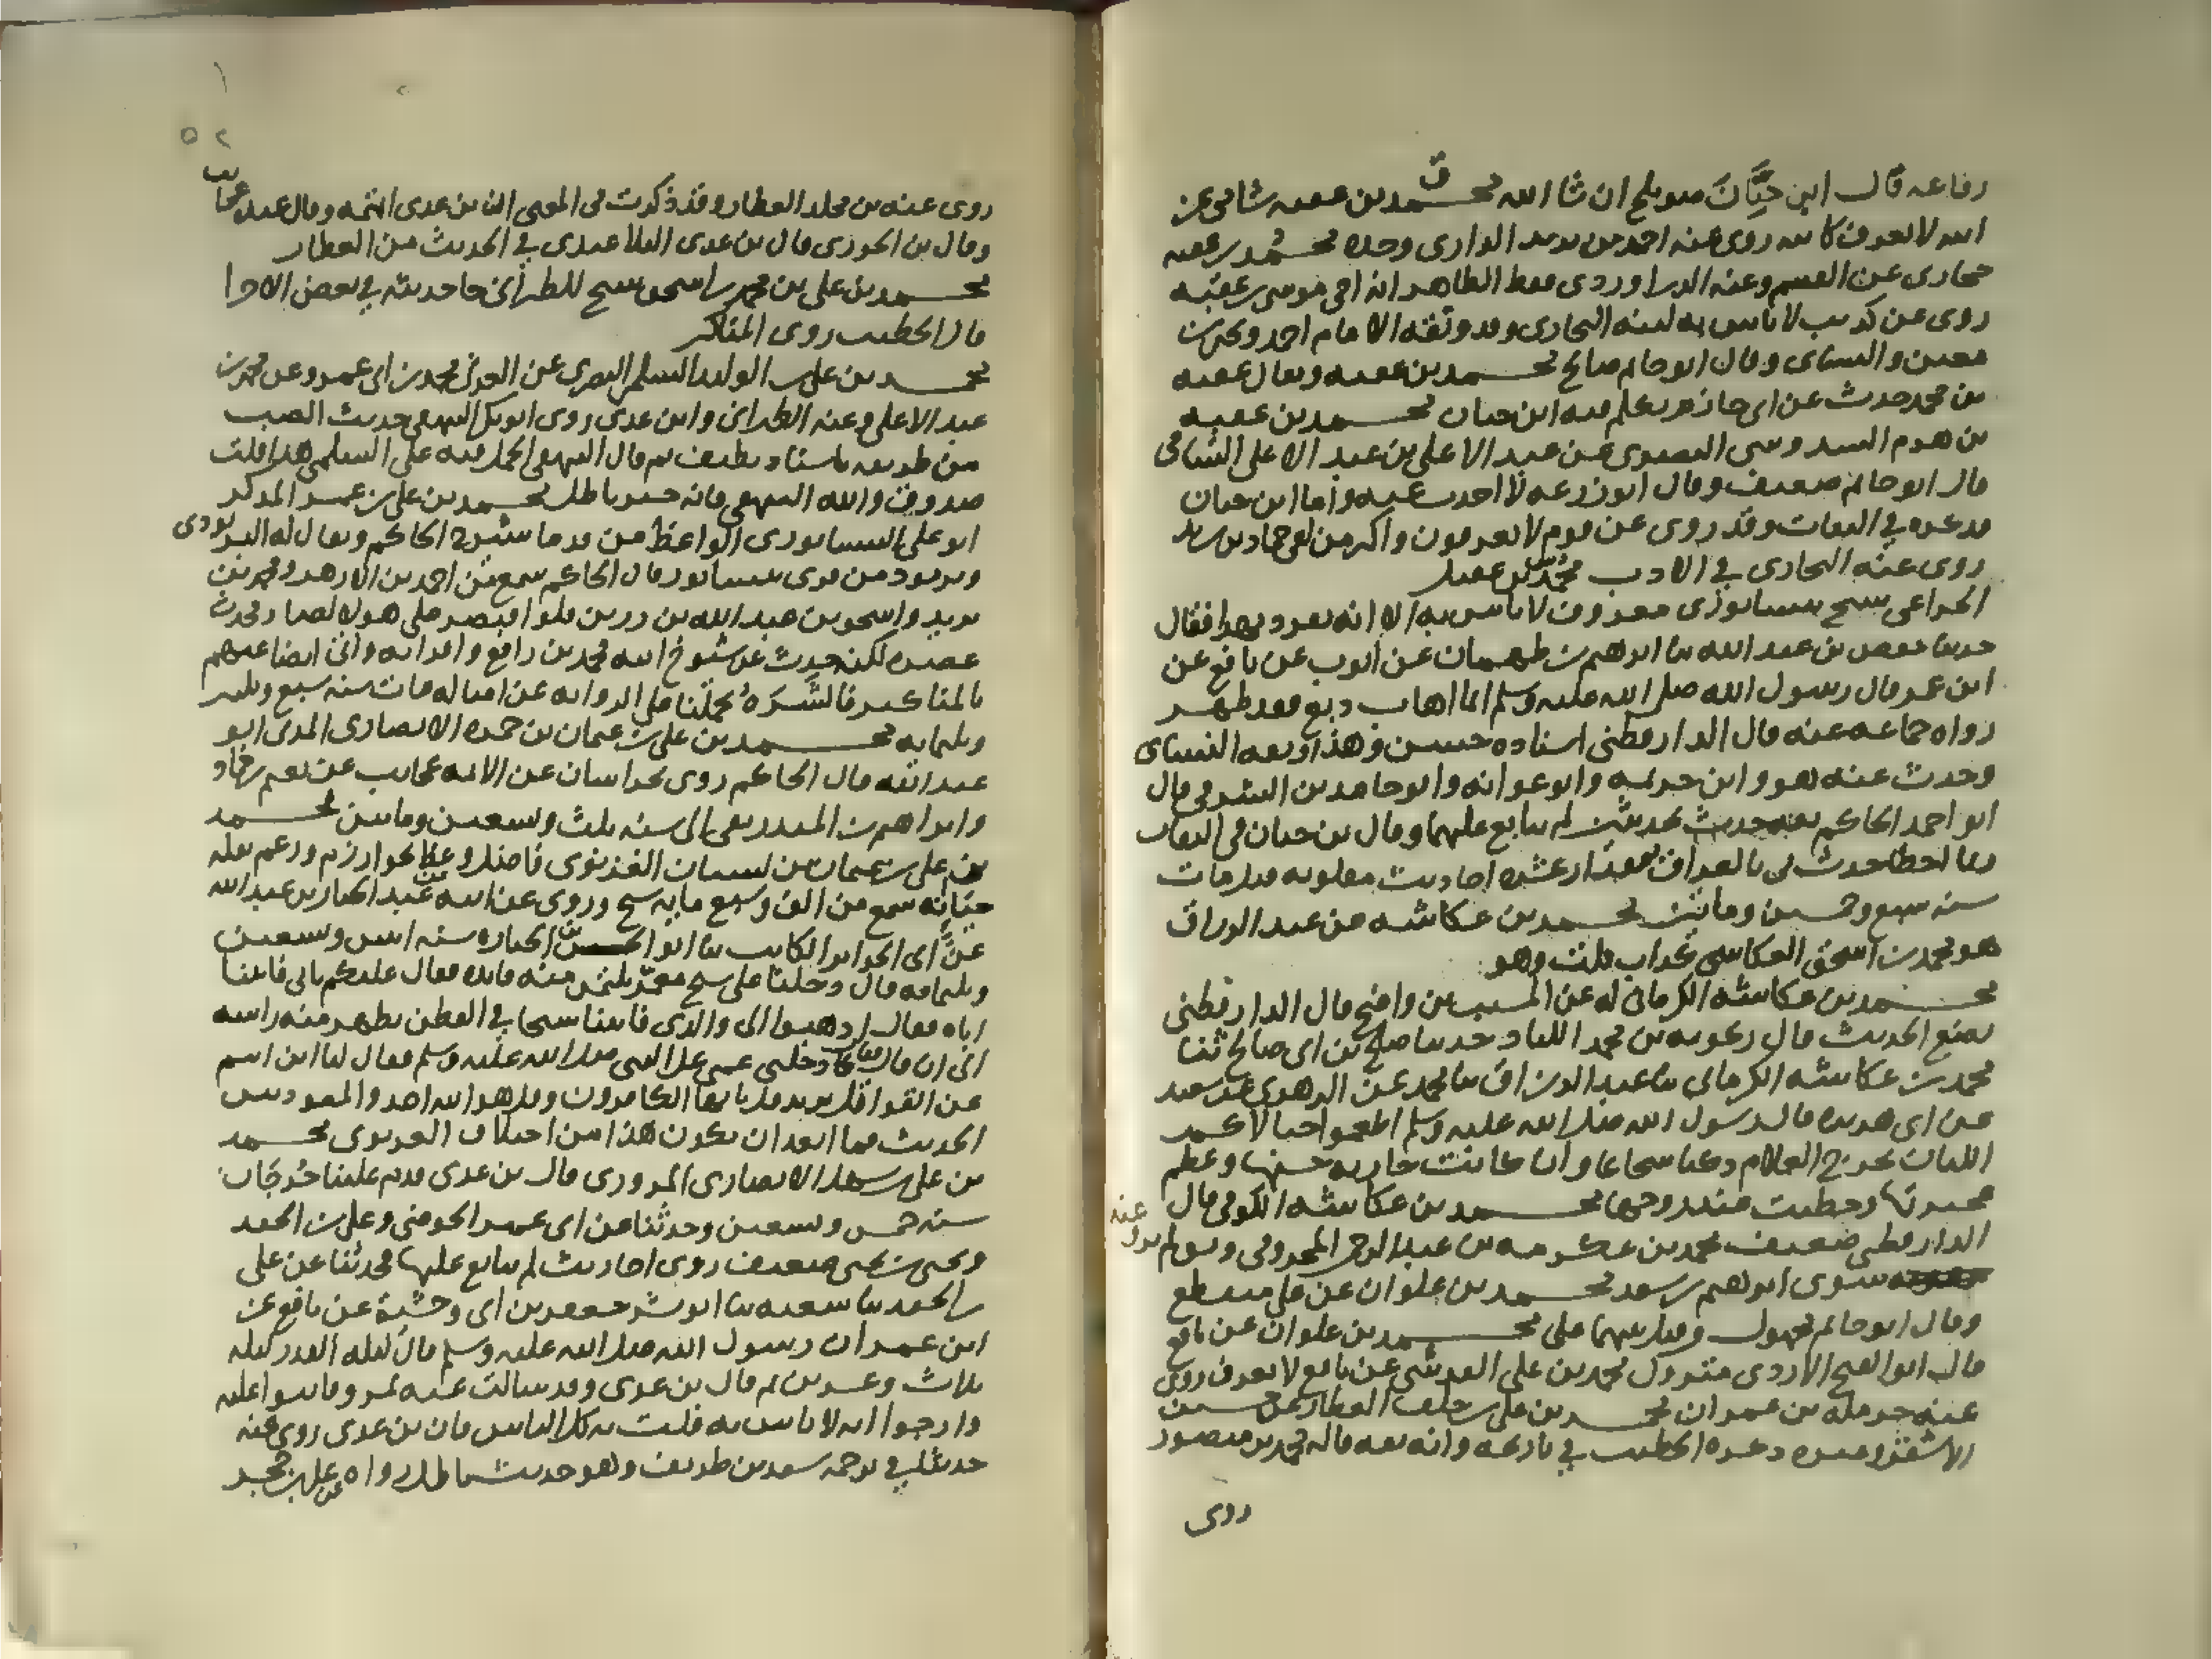 رفاعه قال ابن حِبَّان صويلح ان شا الله محمد بن عقبه شامي عن
ابيه لا يعرف كابيه روى عنه احمد بن يزيد الداري وحده محمد بن عقبه
حجازى عن القسم وعنه الدراوردى فقط الظاهر انه اخي موسى بن عقبه
روى عن كريب لا باس به لينه البخارى وقد وثقه الامام احمد ويحيى بن
معين والنساى وقال ابو حاتم صالح محمد بن عقبه ويقال عقبه
بن محمد حدث عن ابى حازم تكلم فيه ابن حبان محمد بن عقبه
بن هرم السدوسى البصرى عن عبد الاعلى بن عبد الاعلى الشامى
قال ابو حاتم ضعيف وقال ابو زرعه لا احدث عنه واما ابن حبان
فذكره في الثقات وقد روى عن قوم لا يعرفون واكبر من لقى حماد بن زيد
روى عنه البخارى في الادب محمد بن عقيل
الخزاعى شيخ نيسابورى معروف لا باس به الا انه تفرد بهذا فقال
حدثنا حفص بن عبد الله ثنا ابرهيم بن طهمان عن ايوب عن نافع عن
ابن عمر قال رسول الله صلى الله عليه وسلم ايما اهاب دبغ فقد طهر
رواه جماعه عنه قال الدارقطنى اسناده حسن وهذا وثقه النساى
وحدث عنه هو وابن خزيمه وابو عوانه وابو حامد بن الشرقى قال
ابو احمد الحاكم ثقه حدث بحديثين لم يتابع عليهما وقال بن حبان في الثقات
ربما اخطا حدث بالعراق بمقدار عشره احاديث مقلوبه مات
سنه سبع وخمسين وماتين محمد بن عكاشه عن عبد الرزاق
هو محمد بن اسحق العكاشى كذاب قلت وهو
محمد بن عكاشه الكرمانى له عن المسيب بن واضح قال الدارقطنى
يضع الحديث قال بن محمد اللباد حدثنا صالح بن ابى صالح ثنا
محمد بن عكاشه الكرمانى ثنا عبد الرزاق ثنا معمر عن الزهرى عن سعيد
عن ابى هريره قال رسول الله صلى الله عليه وسلم اطعموا حبالاكم
اللبان يخرج الغلام ذكيا شجاعا وان كانت جاريه حسنها وعظم
عجيزتها وحظيت عند زوجها محمد بن عكاشه الكوفى قال
الدارقطنى ضعيف محمد بن عكرمه بن عبد الرحمن المخزومى لم يرو عنه
سوى ابرهيم بن سعد محمد بن علوان عن على منقطع
وقال ابو حاتم مجهول محمد بن علوان عن نافع
قال ابو الفتح الازدى متروك محمد بن على القرشى عن نافع لا يعرف روى
عنه حرمله بن عمران محمد بن على بن خلف العطار عن حسين
الاشقر وغيره ذكره الخطيب في تاريخه وانه ثقه قاله محمد بن منصور
روى
٥٢
روى عنه بن مخلد العطار وقد ذكرت فى المغنى ان بن عدى اتهمه وقال عنده عجايب
وقال بن الجوزى قال بن عدى البلا عندى في الحديث من العطار
محمد بن على بن محمد بن اسحق شيخ للطبرانى جا حديثه في بعض الاجزا
قال الخطيب روى المناكر
محمد بن على بن الوليد السلمى البصرى عن العدنى محمد بن ابى عمر وعن محمد بن
عبد الاعلى وعنه الطبرانى وابن عدى روى ابو بكر البيهقى حديث الضب
من طريقه باسناد نظيف ثم قال البيهقى الحمل فيه على السلمى هذا قلت
صدق والله البيهقى فانه خبر باطل محمد بن على بن عمر المذكر
ابو على النيسابورى الواعظ من قدما شيوخ الحاكم ويقال له البرنوذى
وبرنوذ من قرى نيسابور قال الحاكم سمع من احمد بن الازهر ومحمد بن
يزيد واسحق بن عبد الله بن رزين فلو اقتصر على هولا لصار محدث
عصره لكن حدث عن شيوخ ابيه محمد بن رافع واقرانه واتى ايضا عنهم
بالمناكير فالشره يحملنا على الروايه عن امثاله مات سنه سبع وثلثين
وثلثمايه محمد بن على بن عثمان بن حمزه الانصارى المدنى ابو
عبد الله قال الحاكم روى بخراسان عن الايمه عجايب عن نعيم بن حماد
وابراهيم بن المنذر بقى الى سنه ثلث وتسعين وماتين محمد
بن على بن عثمان بن لسمان الغزنوى فاضل وعظ بخوارزم وزعم بقله
حيائه سمع من الف وسبع مايه شيخ وروى عن ابيه عن عبد الجبار بن عبد الله
عن ابى الجوايز الكاتب ثنا ابو الحسن الحياره سنه اثنين وتسعين
وثلثمايه قال دخلنا على شيخ معمر نلتمس منه فايده فقال عليكم بابى فاتينا
اباه فقال اذهبوا الى والدى فاتينا شيخا في القطن يظهر منه راسه
الى ان قال دخلت مع عمى على النبى صلى الله عليه وسلم فقال لنا ابن اسم
عن القواقل يريد قل يا ايها الكافرون وقل هو الله احد والمعوذتين
الحديث فما ابعد ان يكون هذا من اختلاق الغزنوى محمد
بن على بن سهل الانصارى المروزى قال بن عدى قدم علينا جُرجَان
سنه خمس وتسعين وحدثنا عن ابى عمر الحوضى وعلى بن الجعد
ويحيى بن يحيى ضعيف روى احاديث لم يتابع عليها فحدثنا عن على
بن الجعد ثنا شعبه ثنا ابو بشر جعفر بن ابى وحشية عن نافع عن
ابن عمر ان رسول الله صلى الله عليه وسلم قال ليله القدر ليله
ثلاث وعشرين ثم قال بن عدى وقد سالت عنه بمرو فاثنوا عليه
وارجوا انه لا باس به قلت به كل الباس فان بن عدى روى عنه
حديثا في ترجمه سعد بن طريف وهو حديث باطل رواه عن على بن حجر